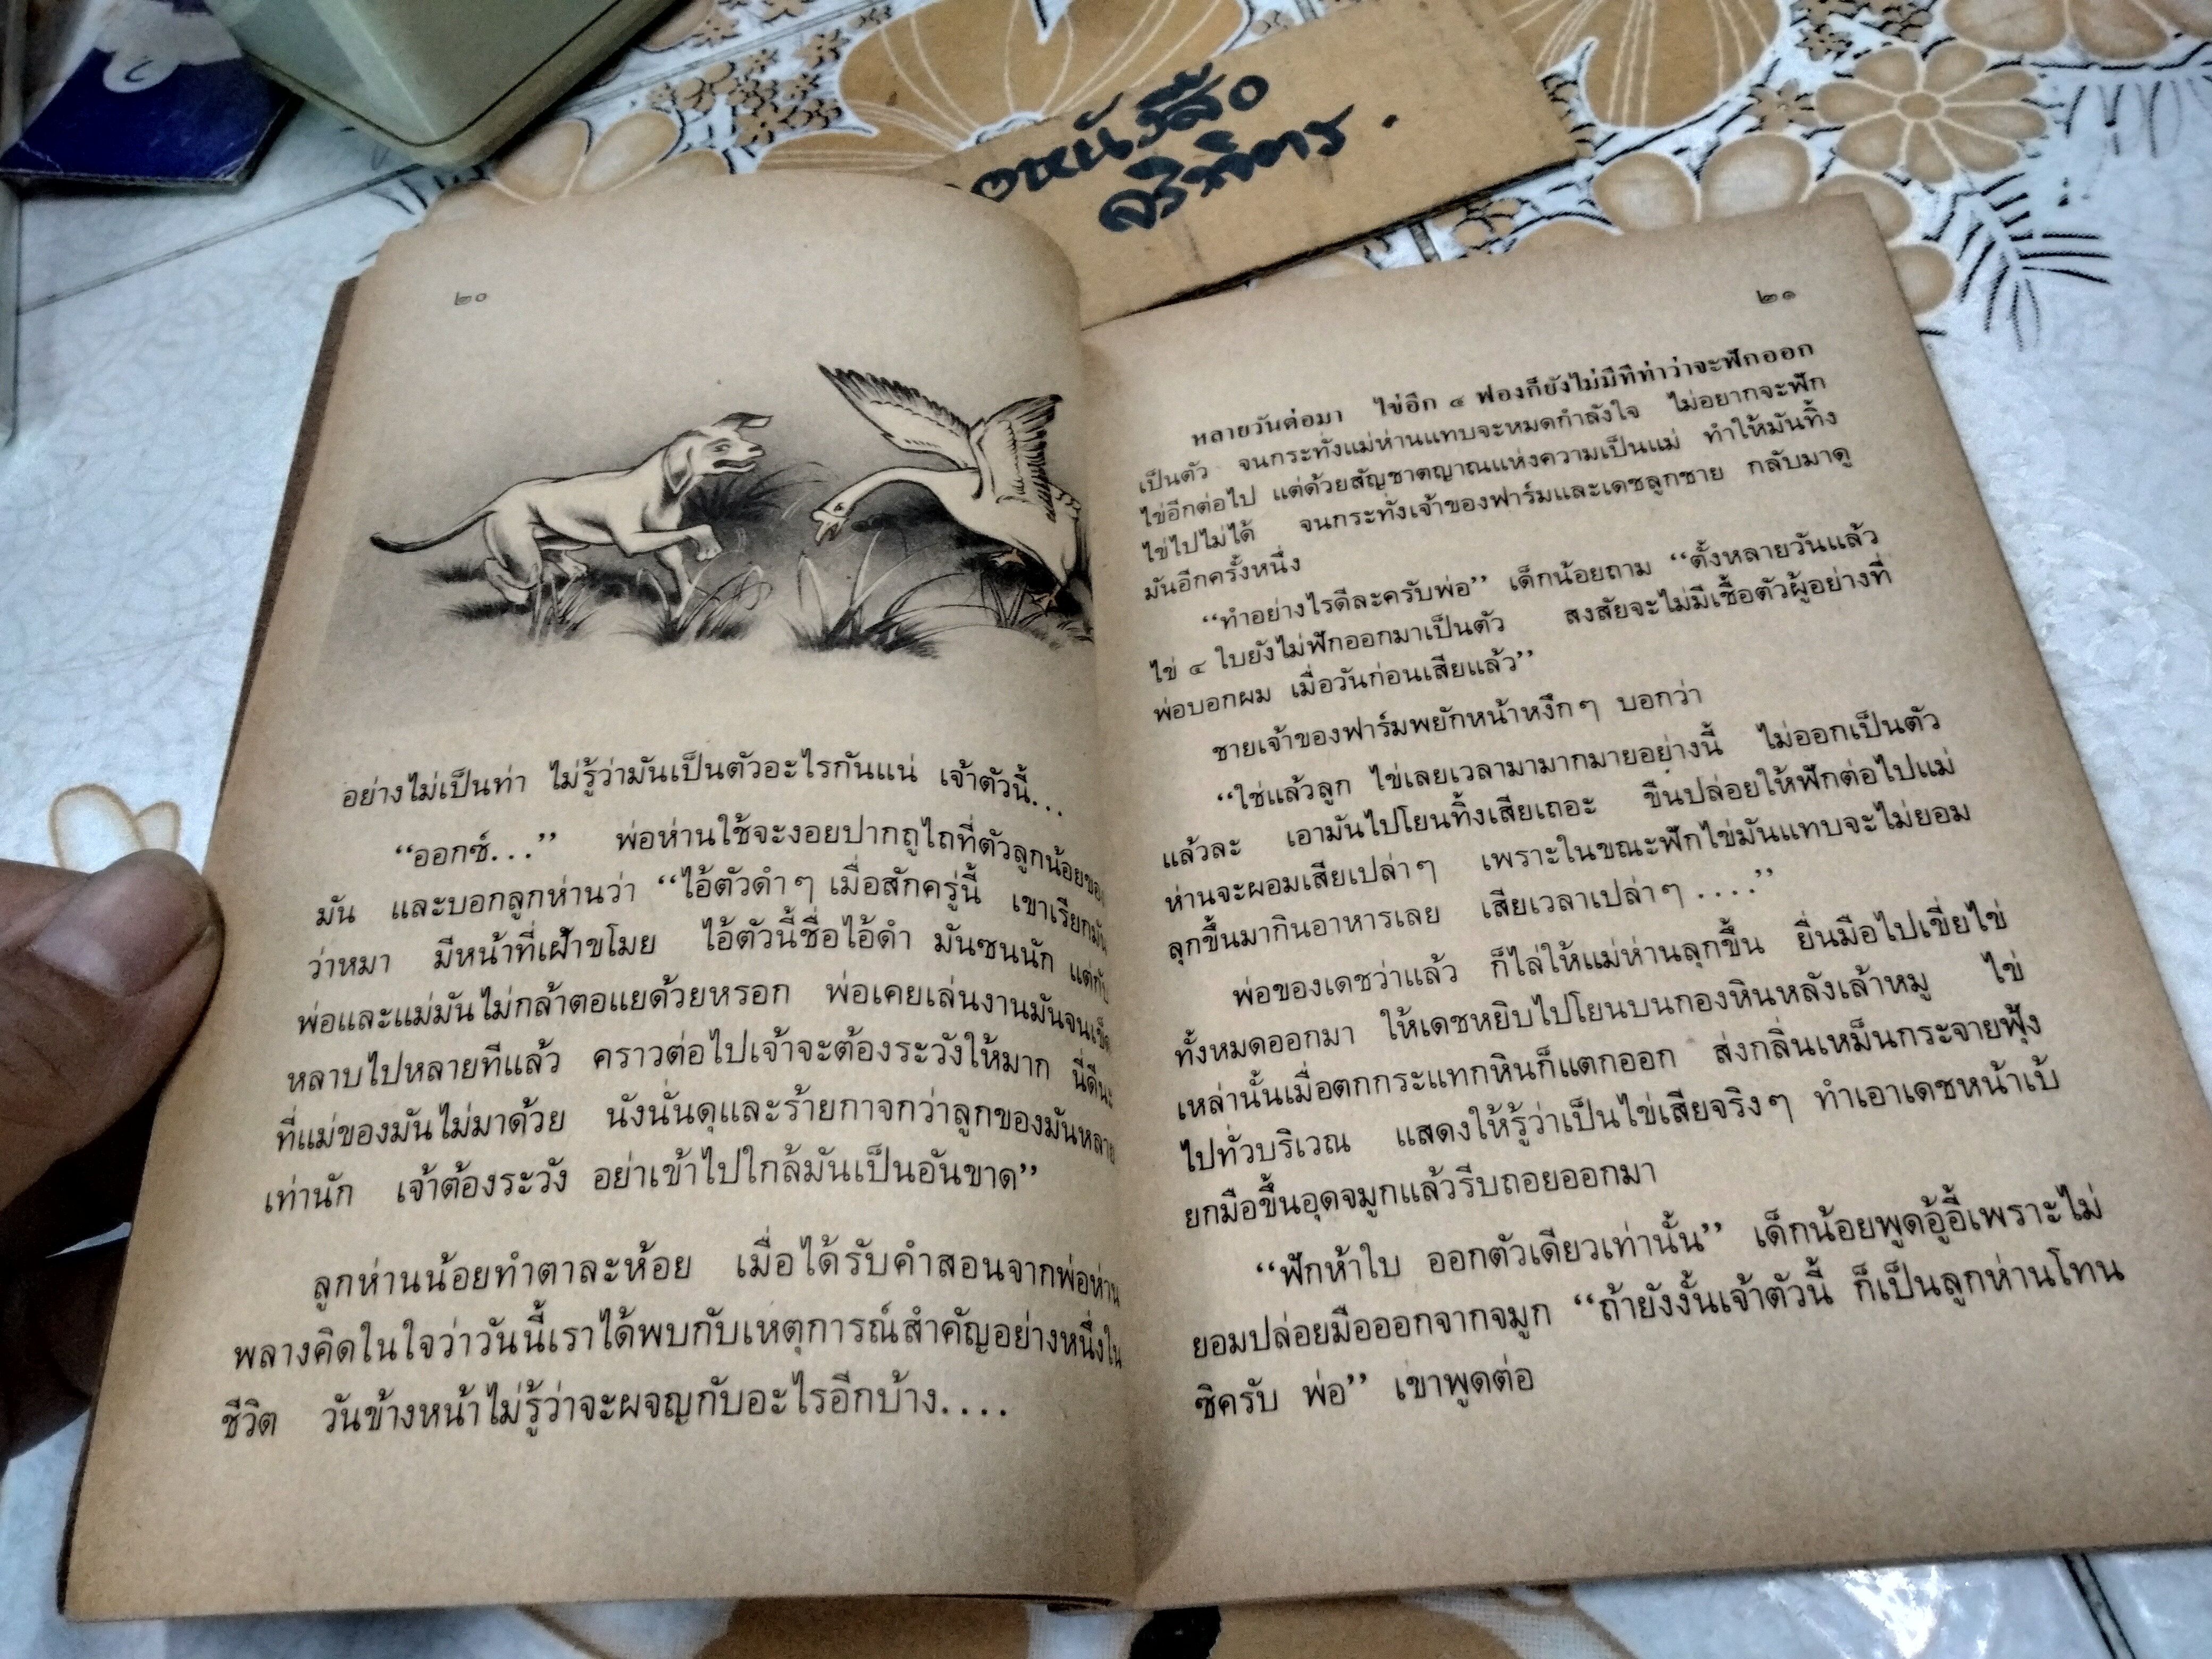 อหนังสือ
ศรีจิตร.
๒๐
อย่างไม่เป็นท่า ไม่รู้ว่ามันเป็นตัวอะไรกันแน่ เจ้าตัวนี้...
“ออกซ์...” พ่อห่านใช้จะงอยปากถูไถที่ตัวลูกน้อยของ
มัน และบอกลูกห่านว่า “ไอ้ตัวดำๆ เมื่อสักครู่นี้ เขาเรียกมัน
ว่าหมา มีหน้าที่เฝ้าขโมย ไอ้ตัวนี้ชื่อไอ้ดำ มันซนนัก แต่กับ
พ่อและแม่มันไม่กล้าตอแยด้วยหรอก พ่อเคยเล่นงานมันจนเข็ด
หลาบไปหลายทีแล้ว คราวต่อไปเจ้าจะต้องระวังให้มาก นี่ดีนะ
ที่แม่ของมันไม่มาด้วย นังนั่นดุและร้ายกาจกว่าลูกของมันหลาย
เท่านัก เจ้าต้องระวัง อย่าเข้าไปใกล้มันเป็นอันขาด”
ลูกห่านน้อยทำตาละห้อย เมื่อได้รับคำสอนจากพ่อห่าน
พลางคิดในใจว่าวันนี้เราได้พบกับเหตุการณ์สำคัญอย่างหนึ่งใน
ชีวิต วันข้างหน้าไม่รู้ว่าจะผจญกับอะไรอีกบ้าง....
๒๑
หลายวันต่อมา ไข่อีก ๔ ฟองก็ยังไม่มีทีท่าว่าจะฟักออก
เป็นตัว จนกระทั่งแม่ห่านแทบจะหมดกำลังใจ ไม่อยากจะฟัก
ไข่อีกต่อไป แต่ด้วยสัญชาตญาณแห่งความเป็นแม่ ทำให้มันทิ้ง
ไข่ไปไม่ได้ จนกระทั่งเจ้าของฟาร์มและเดชลูกชาย กลับมาดู
มันอีกครั้งหนึ่ง
“ทำอย่างไรดีละครับพ่อ” เด็กน้อยถาม “ตั้งหลายวันแล้ว
ไข่ ๔ ใบยังไม่ฟักออกมาเป็นตัว สงสัยจะไม่มีเชื้อตัวผู้อย่างที่
พ่อบอกผม เมื่อวันก่อนเสียแล้ว”
ชายเจ้าของฟาร์มพยักหน้าหงึกๆ บอกว่า
“ใช่แล้วลูก ไข่เลยเวลามามากมายอย่างนี้ ไม่ออกเป็นตัว
แล้วละ เอามันไปโยนทิ้งเสียเถอะ ขืนปล่อยให้ฟักต่อไปแม่
ห่านจะผอมเสียเปล่าๆ เพราะในขณะฟักไข่มันแทบจะไม่ยอม
ลุกขึ้นมากินอาหารเลย เสียเวลาเปล่าๆ ....”
พ่อของเดชว่าแล้ว ก็ไล่ให้แม่ห่านลุกขึ้น ยื่นมือไปเขี่ยไข่
ทั้งหมดออกมา ให้เดชหยิบไปโยนบนกองหินหลังเล้าหมู ไข่
เหล่านั้นเมื่อตกกระแทกหินก็แตกออก ส่งกลิ่นเหม็นกระจายฟุ้ง
ไปทั่วบริเวณ แสดงให้รู้ว่าเป็นไข่เสียจริงๆ ทำเอาเดชหน้าเบ้
ยกมือขึ้นอุดจมูกแล้วรีบถอยออกมา
“ฟักห้าใบ ออกตัวเดียวเท่านั้น” เด็กน้อยพูดอู้อี้เพราะไม่
ยอมปล่อยมือออกจากจมูก “ถ้ายังงั้นเจ้าตัวนี้ ก็เป็นลูกห่านโทน
ซิครับ พ่อ” เขาพูดต่อ